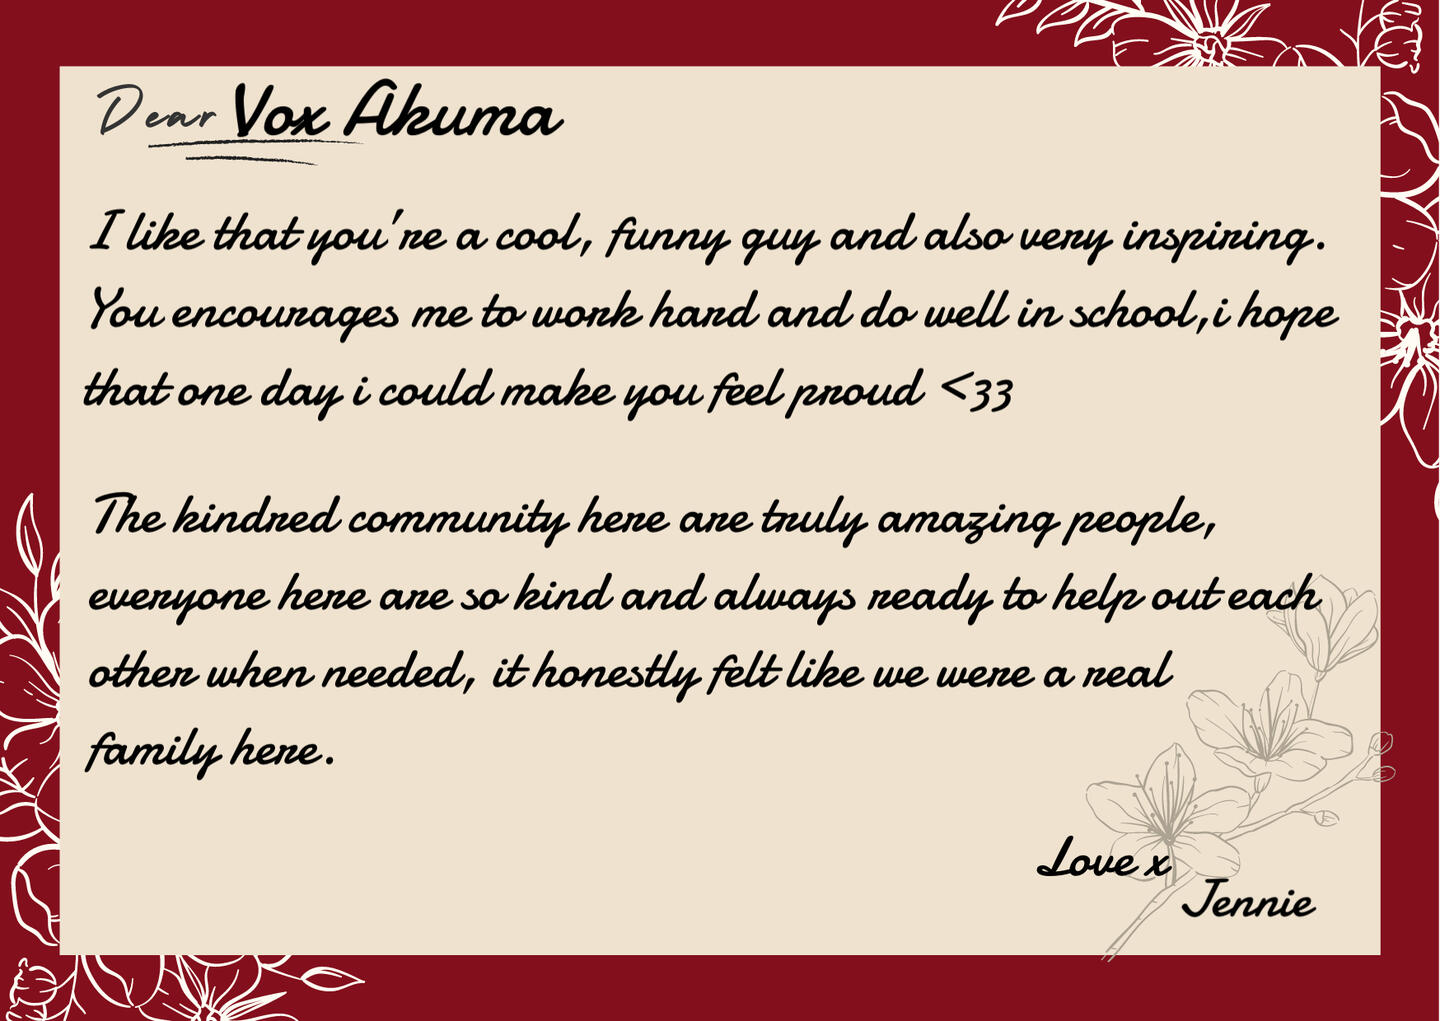 Dear Vox Akuma
I like that you're a cool, funny guy and also very inspiring.
You encourages me to work hard and do well in school,i hope
that one day i could make you feel proud <33
The kindred community here are truly amazing people,
everyone here are so kind and always ready to help out each
other when needed, it honestly felt like we were a real
family here.
Love x
Jennie